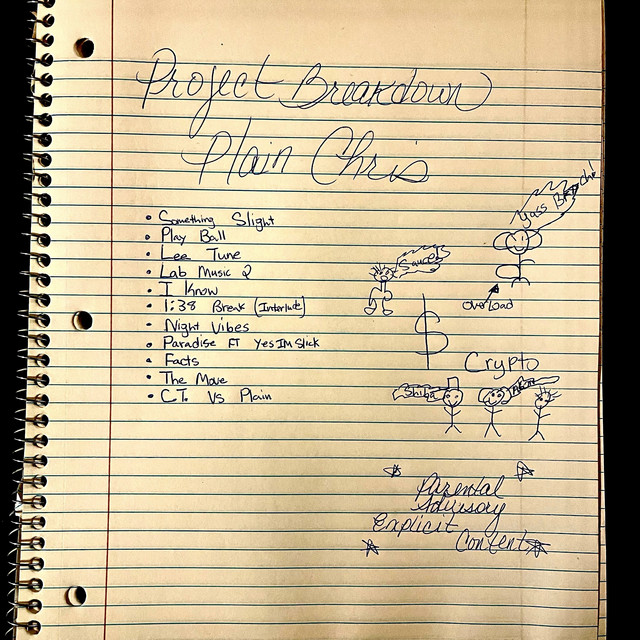 Project Breakdown
Plain Chris
• Something Slight
• Play Ball
• Lee Tune
• Lab Music 2
• I Know
• 1:38 Break (Interlude)
• Night Vibes
• Paradise FT YesIMSlick
• Facts
• The Move
• C.T. Vs Plain
Yass
Sauce
Overload
$
Crypto
Shiba
Parental
Advisory
Explicit
Content